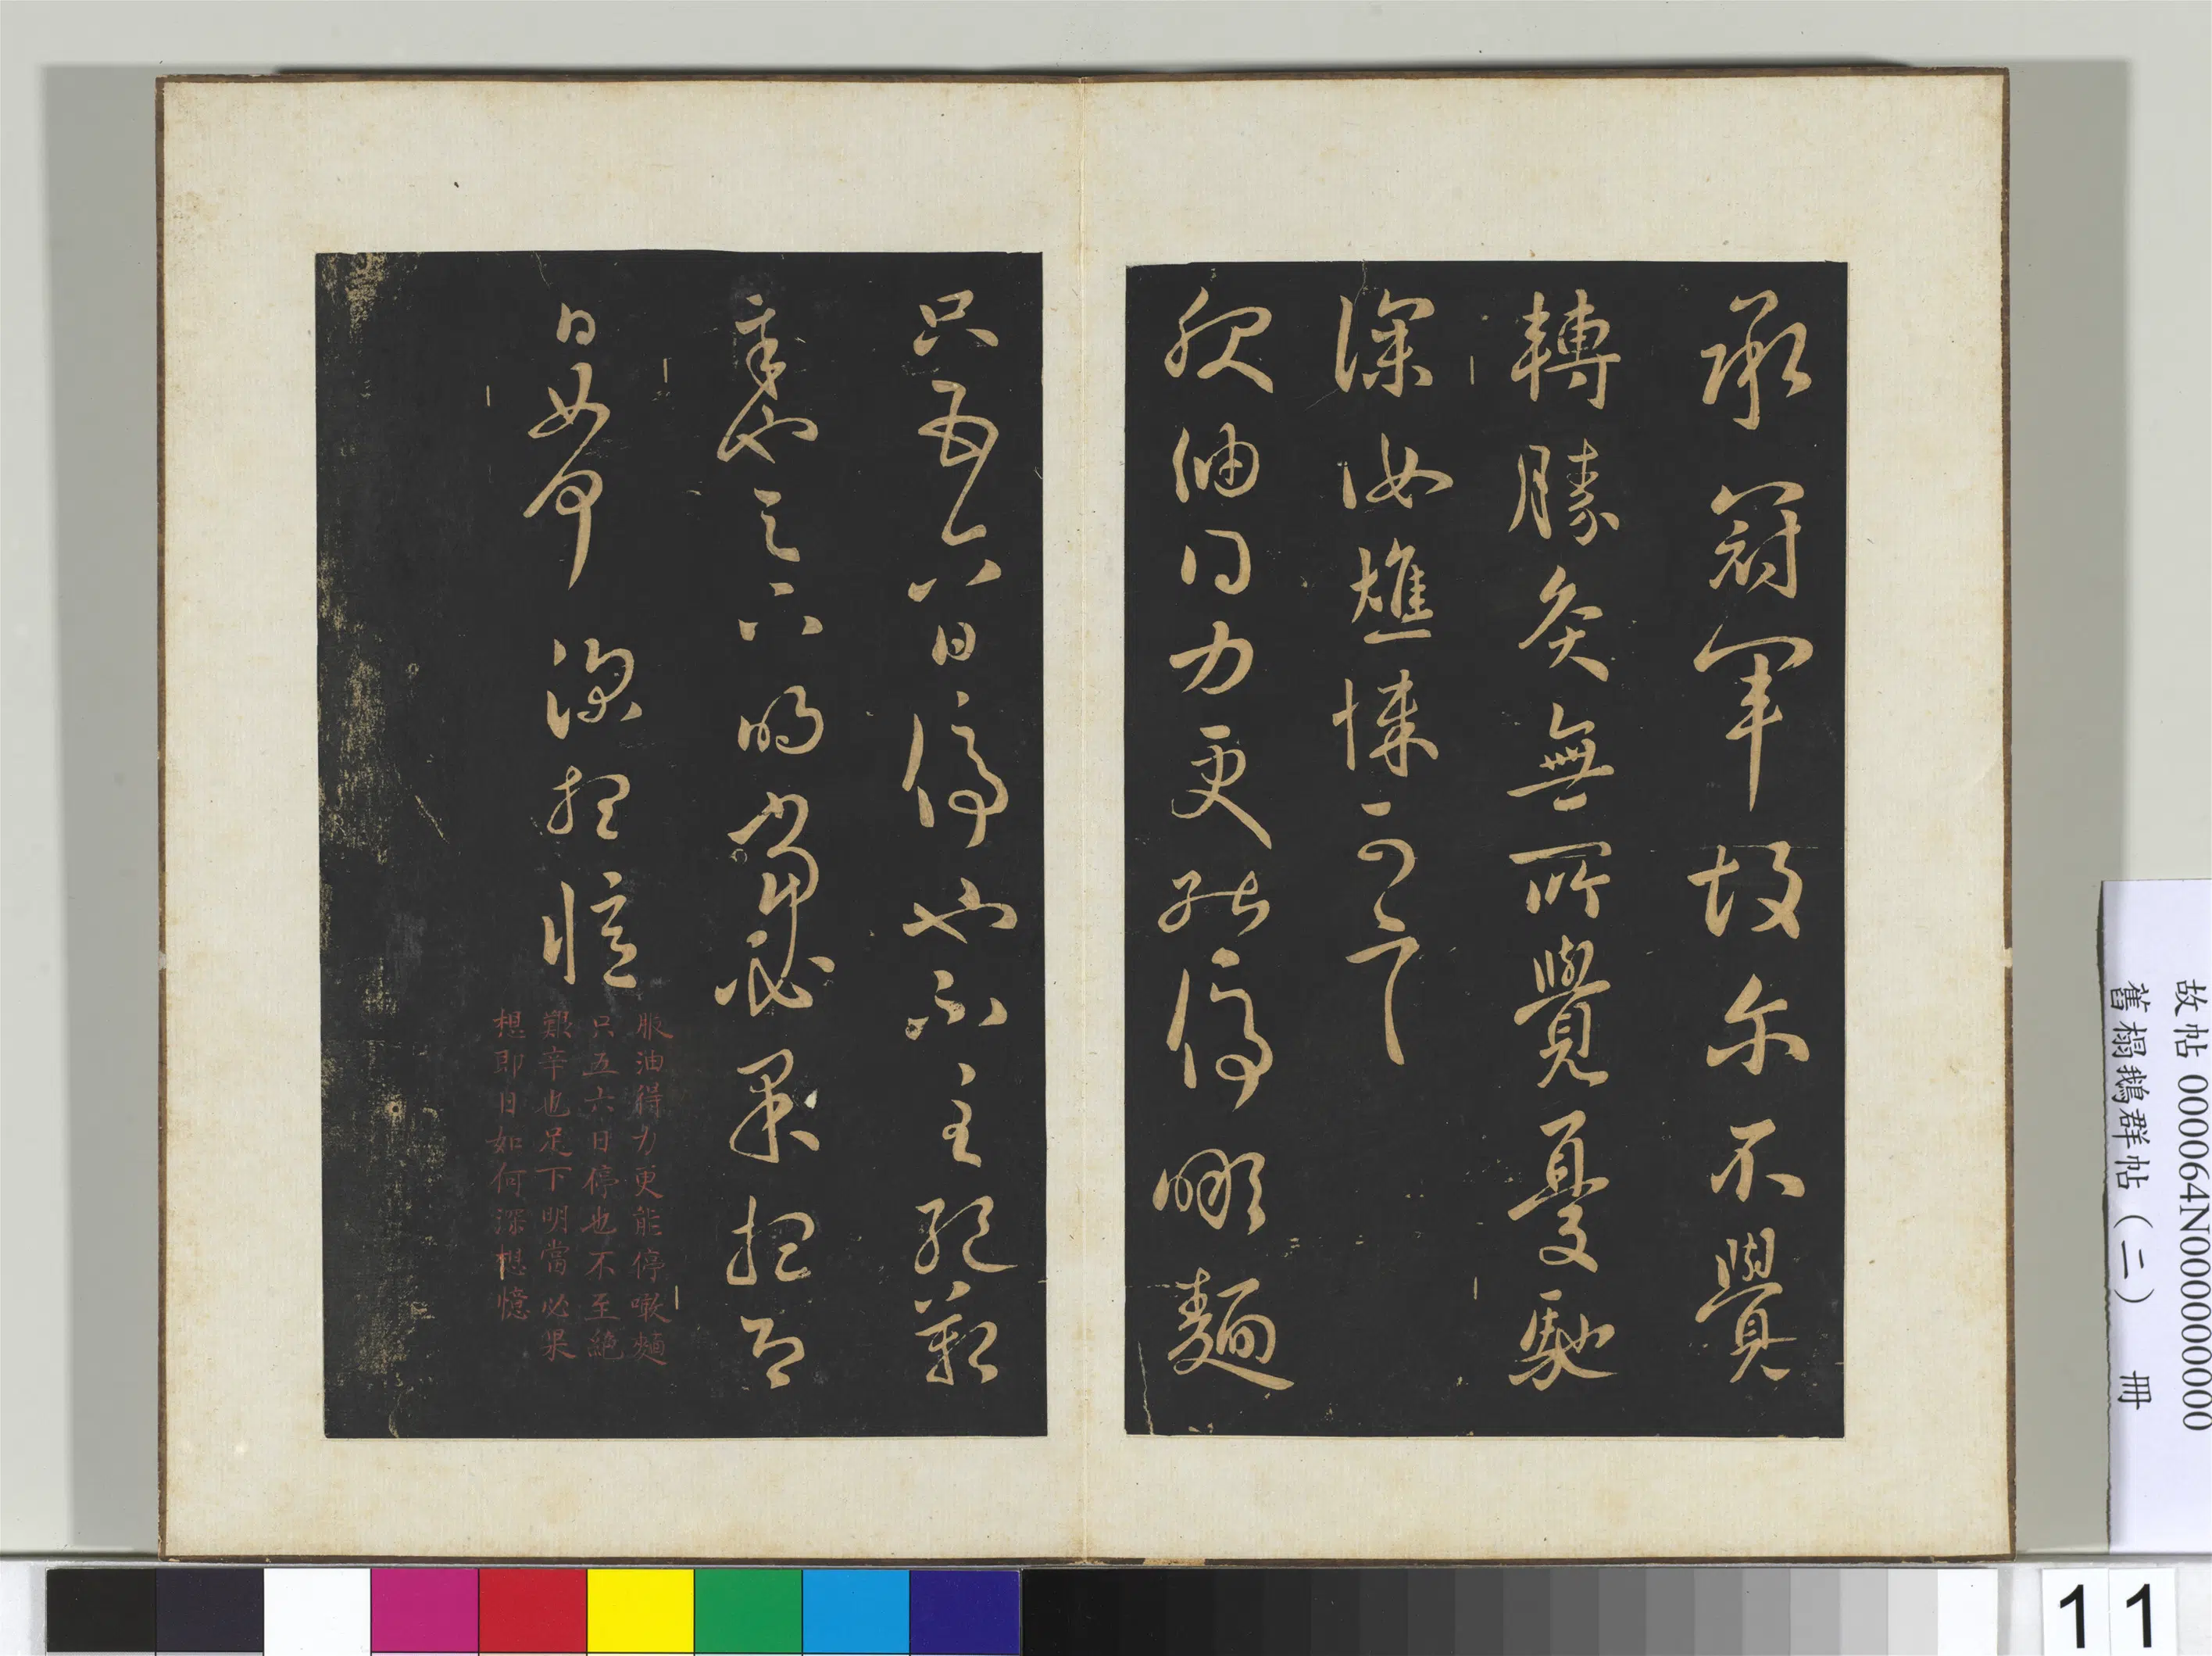 承冠軍故尔不覺
轉勝灸無所覺憂馳
深汝燋悚可言
服油得力更能停噉麵
只五六日停也不至絕艱
辛也足下明當必果想即
日如何深想憶
服油得力更能停噉麵
只五六日停也不至絕
艱辛也足下明當必果
想即日如何深想憶
故帖 000064N000000000
舊榻鵝群帖(二) 冊
11